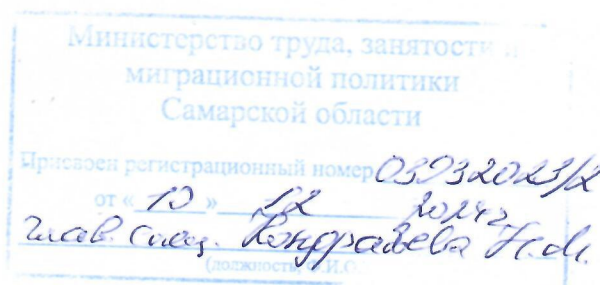 Министерство труда, занятости и
миграционной политики
Самарской области
Присвоен регистрационный номер 03932023/2
от « 10 » 12 2024г
глав. спец. Кондрашева Н.М.
(должность, Ф.И.О.